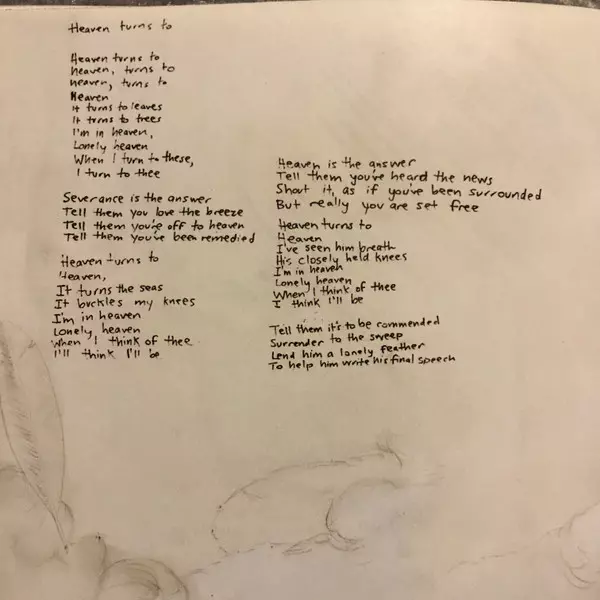 Heaven turns to
Heaven turns to
heaven, turns to
heaven, turns to
Heaven
It turns to leaves
It turns to trees
I'm in heaven,
Lonely heaven
When I turn to these,
I turn to thee
Severance is the answer
Tell them you love the breeze
Tell them you're off to heaven
Tell them you've been remedied
Heaven turns to
Heaven,
It turns the seas
It buckles my knees
I'm in heaven
Lonely heaven
When I think of thee
I'll think I'll be
Heaven is the answer
Tell them you've heard the news
Shout it, as if you've been surrounded
But really you are set free
Heaven turns to
Heaven
I've seen him breath
His closely held knees
I'm in heaven
Lonely heaven
When I think of thee
I think I'll be
Tell them it's to be commended
Surrender to the sweep
Lend him a lonely feather
To help him write his final speech